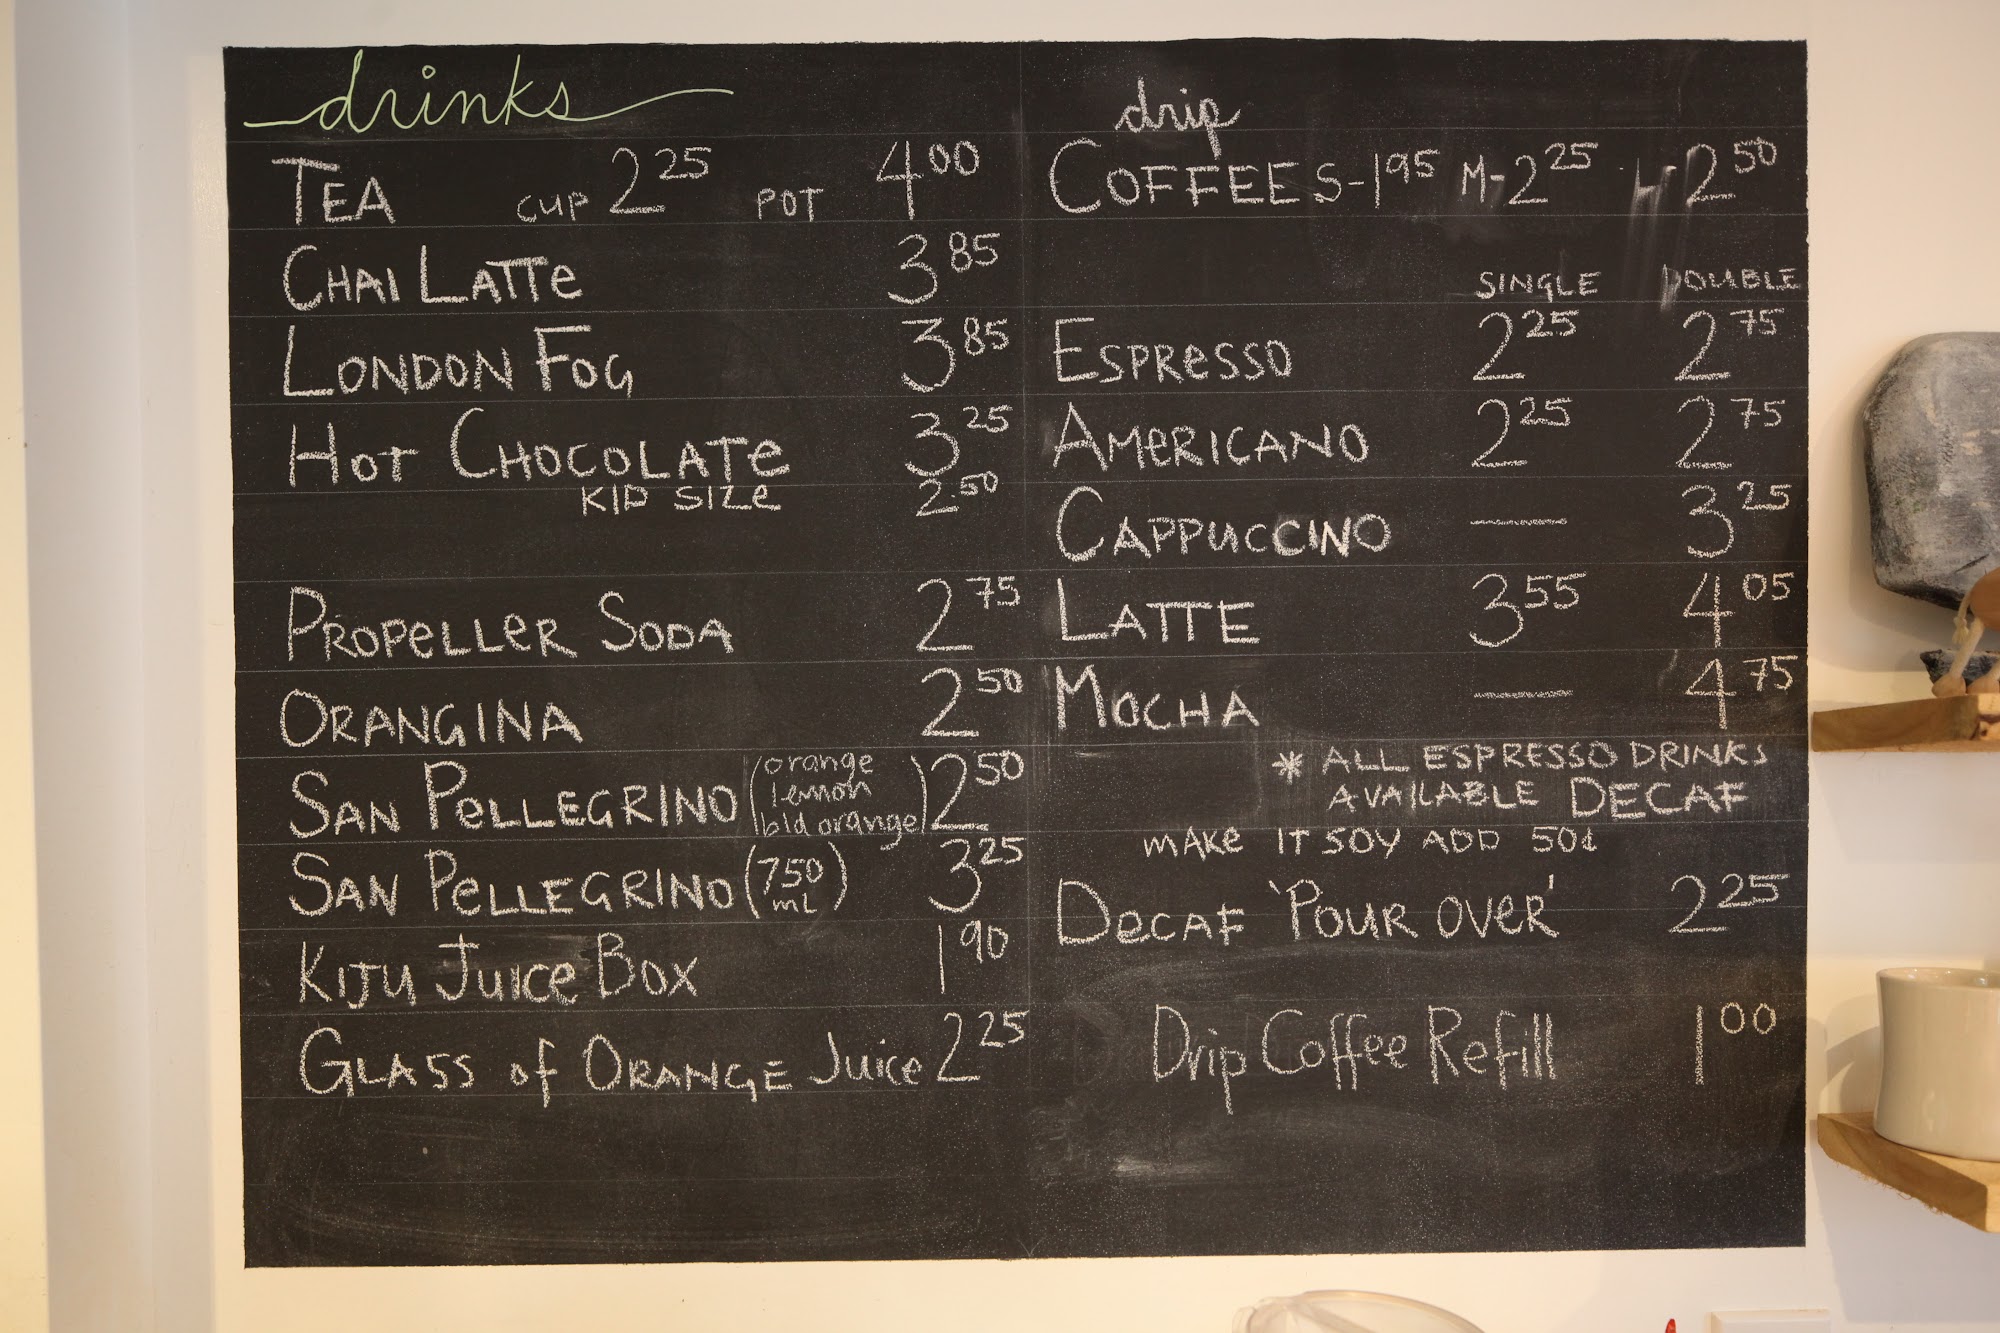 drinks
TEA CUP 2.25 POT 4.00
CHAI LATTE 3.85
LONDON FOG 3.85
HOT CHOCOLATE 3.25
KID SIZE 2.50
PROPELLER SODA 2.75
ORANGINA 2.50
SAN PELLEGRINO (orange lemon bld orange) 2.50
SAN PELLEGRINO (750 mL) 3.25
KIJU JUICE BOX 1.90
GLASS of ORANGE JUICE 2.25
drip
COFFEE S-1.95 M-2.25 L-2.50
SINGLE DOUBLE
ESPRESSO 2.25 2.75
AMERICANO 2.25 2.75
CAPPUCCINO — 3.25
LATTE 3.55 4.05
MOCHA — 4.75
* ALL ESPRESSO DRINKS
AVAILABLE DECAF
MAKE IT SOY ADD 50¢
DECAF 'POUR OVER' 2.25
Drip Coffee Refill 1.00